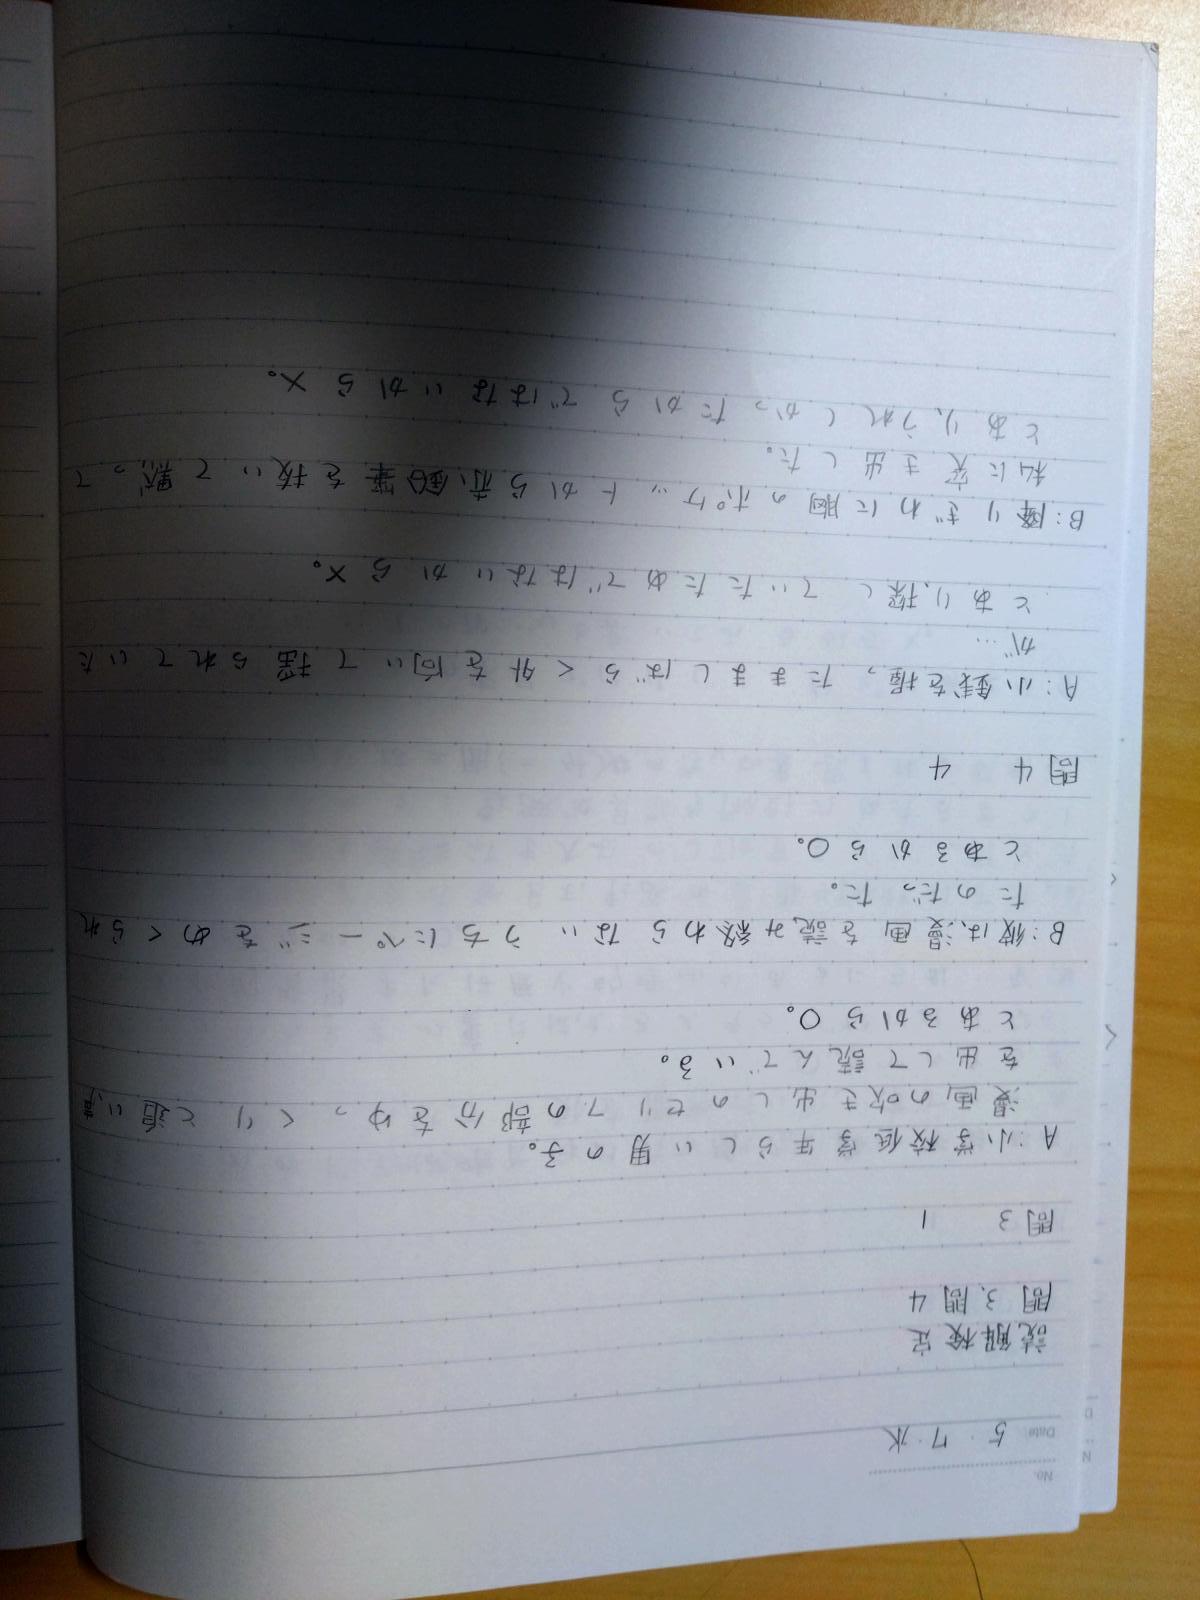 No.
Date 5・7・水
読解検定
問3、問4
問3 1
A:小学校低学年らしい男の子。
漫画の吹き出しのセリフの部分をゆっくりと追い、声
を出して読んでいる。
とあるから○。
B:彼は、漫画を読み終わらないうちにページをめくられ
たのだった。
とあるから○。
問4 4
A:小銭を握ったまましばらく外を向いて揺られていた
が…
とあり、探していたためではないから×。
B:降りぎわに胸のポケットから赤鉛筆を抜いて、黙って
私に突き出した。
とあり、うれしかったからではないから×。